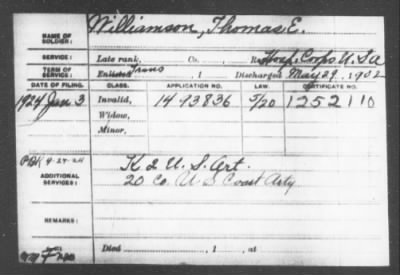 Williamson, Thomas E.
NAME OF SOLDIER:
SERVICE: Late rank, Co. Hosp. Corps U.S.a
TERM OF SERVICE: Trans , 1 Discharged May 29, 1902
DATE OF FILING. CLASS. APPLICATION NO. LAW. CERTIFICATE NO.
1924 Jan 3 Invalid, 14 13836 5/20 1252110
Widow,
Minor,
9-24-24
ADDITIONAL SERVICES: K 2 U. S. Art.
20 Co. U S Coast Arty
REMARKS:
Died , 1 , at